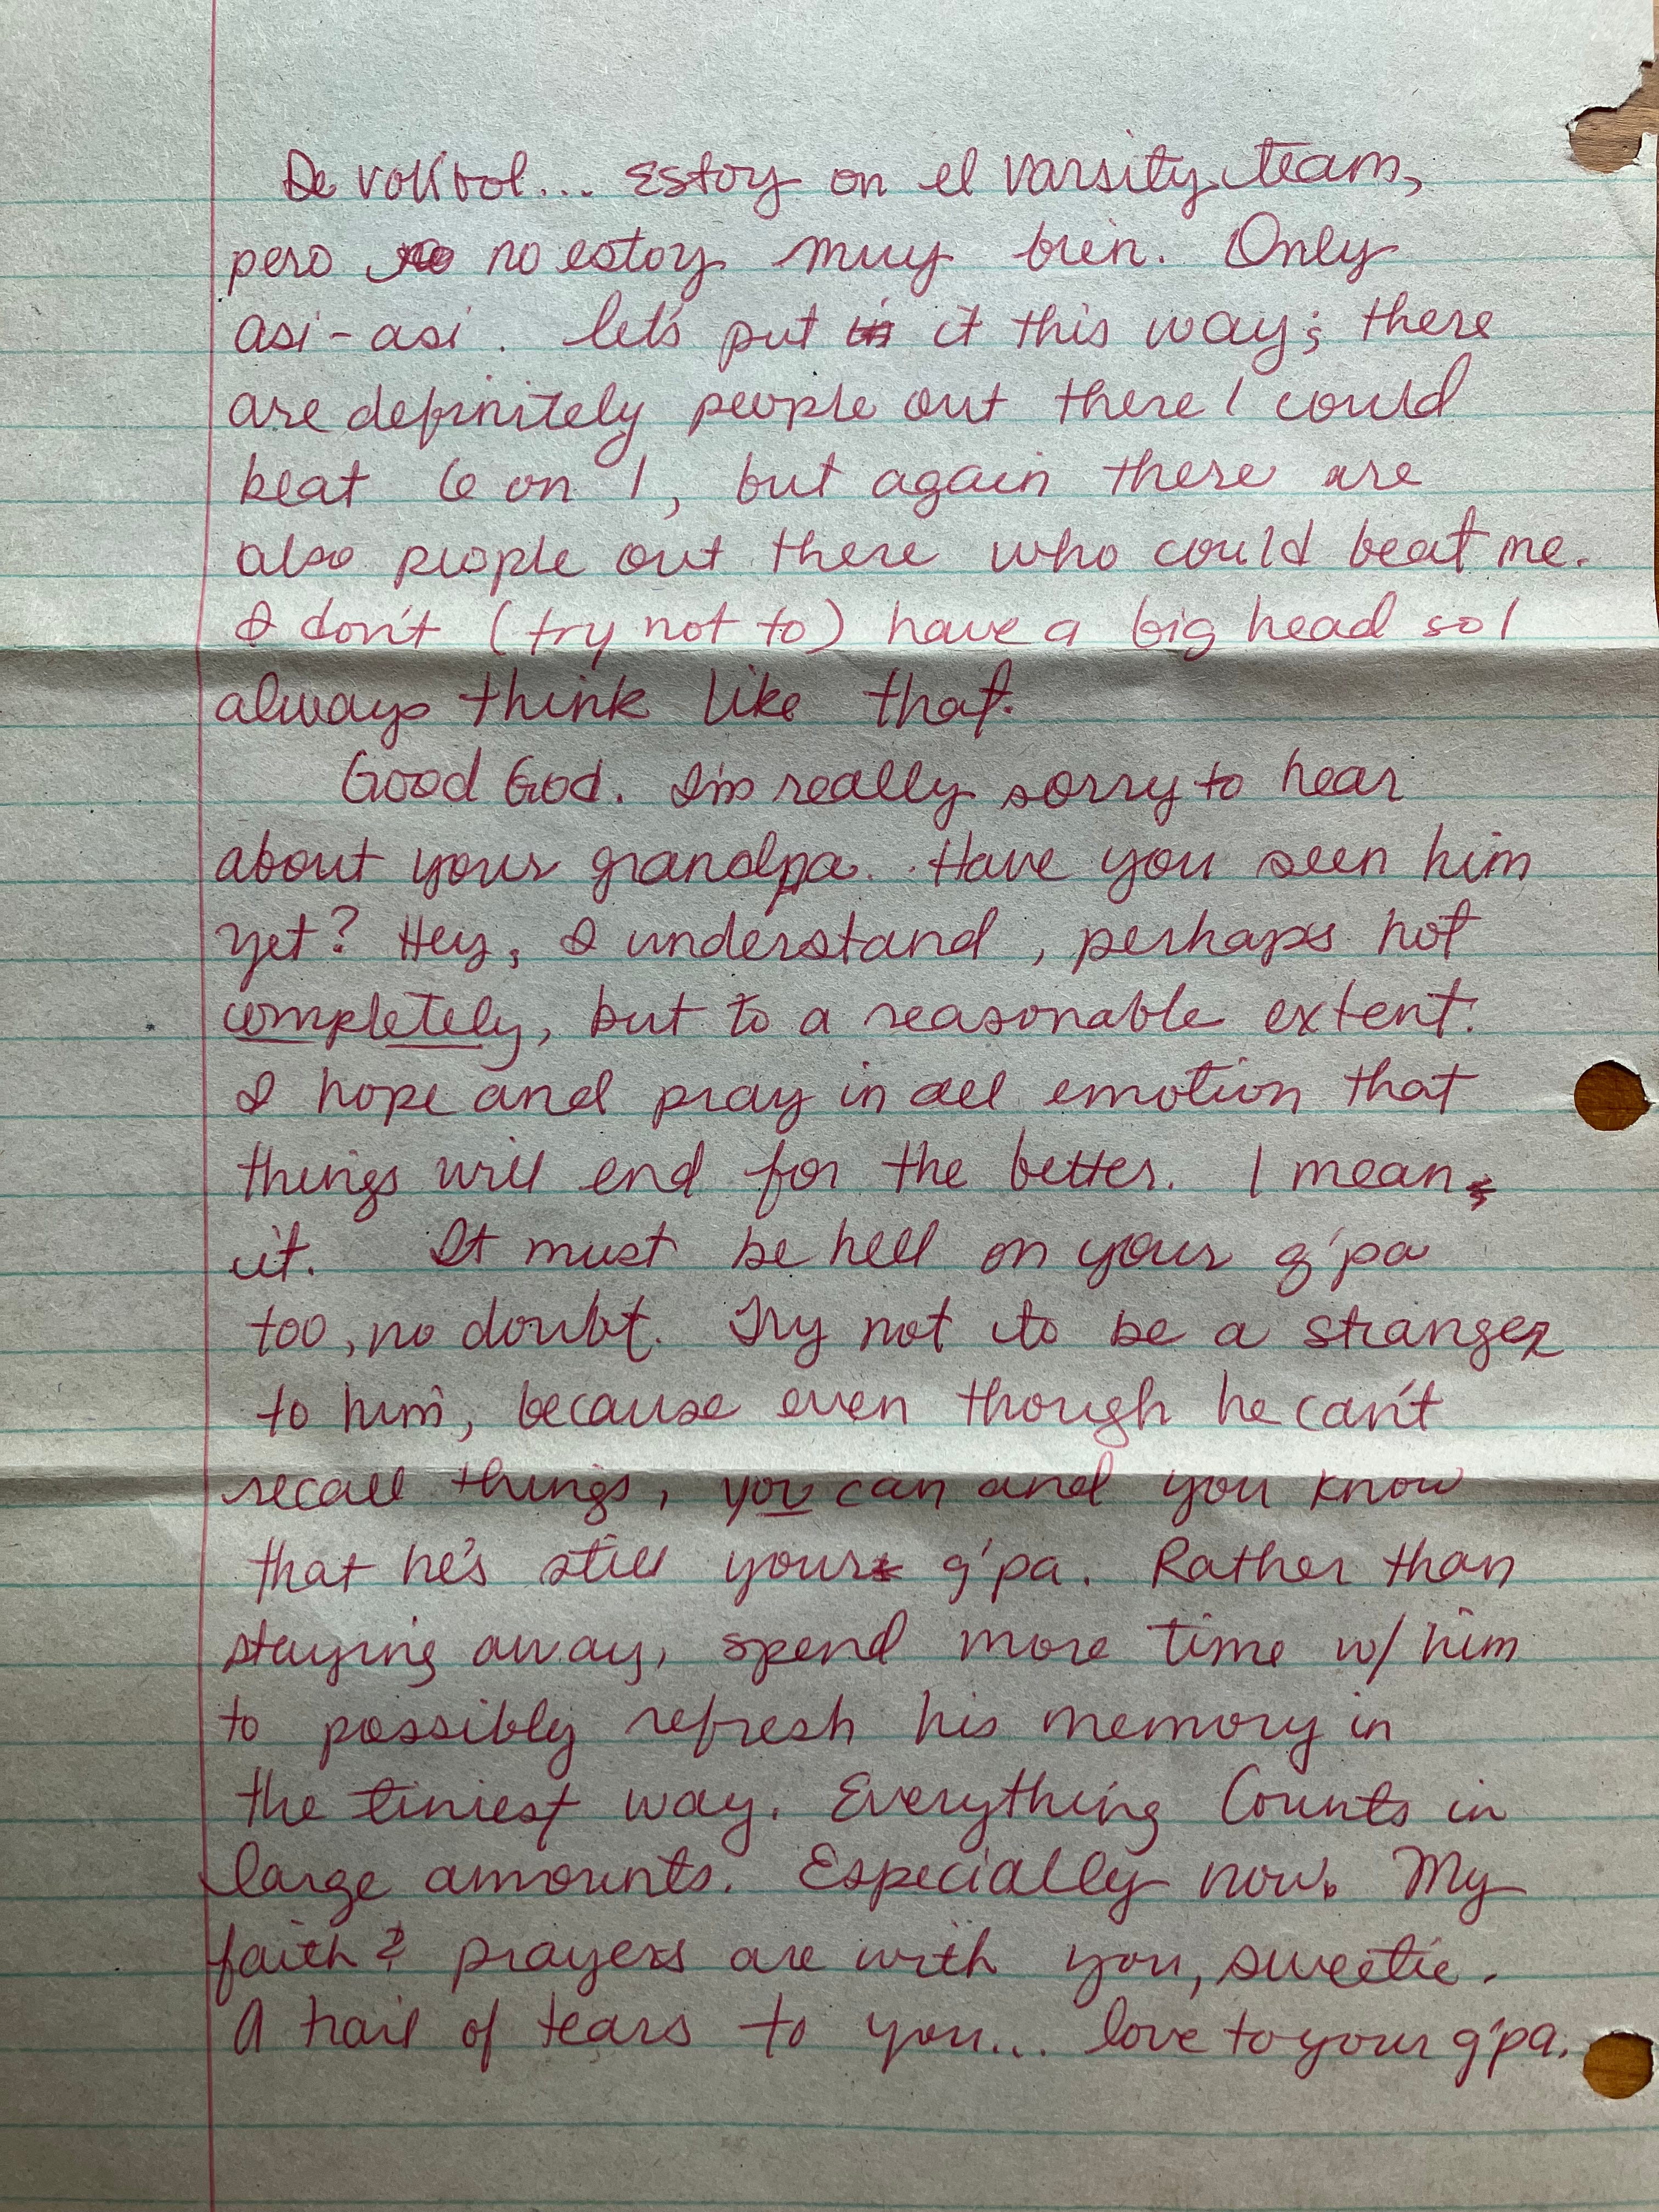 De volibol... Estoy on el varsity team,
pero no no estoy muy bien. Only
asi-asi. let's put in it this way; there
are definitely people out there I could
beat 6 on 1, but again there are
also people out there who could beat me.
I don't (try not to) have a big head so I
always think like that.
Good God. I'm really sorry to hear
about your grandpa. Have you seen him
yet? Hey, I understand, perhaps not
completely, but to a reasonable extent.
I hope and pray in all emotion that
things will end for the better. I mean
it. It must be hell on your g'pa
too, no doubt. Try not to be a stranger
to him, because even though he can't
recall things, you can and you know
that he's still your g'pa. Rather than
staying away, spend more time w/ him
to possibly refresh his memory in
the tiniest way. Everything Counts in
large amounts. Especially now. My
faith & prayers are with you, sweetie.
A trail of tears to you... love to your g'pa.